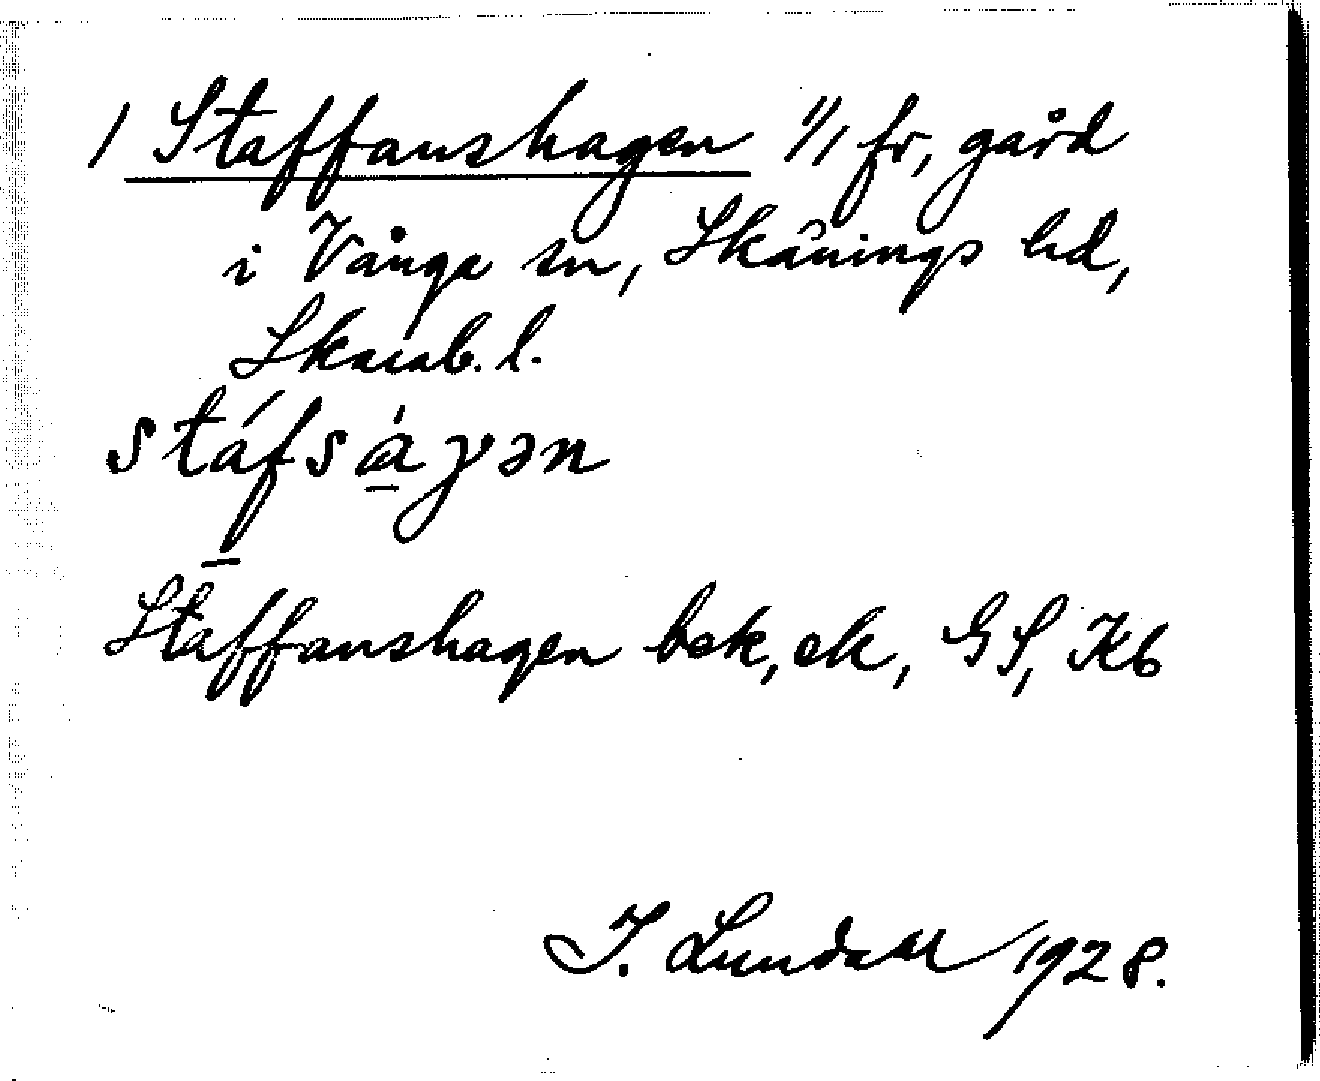 1 Staffanshagen 1/1 fr, gård
i Vånga sn, Skånings hd,
Skarab. l.
stáfsàγən
Staffanshagen bok, ek, GS, Kb
I. Lundahl 1928.